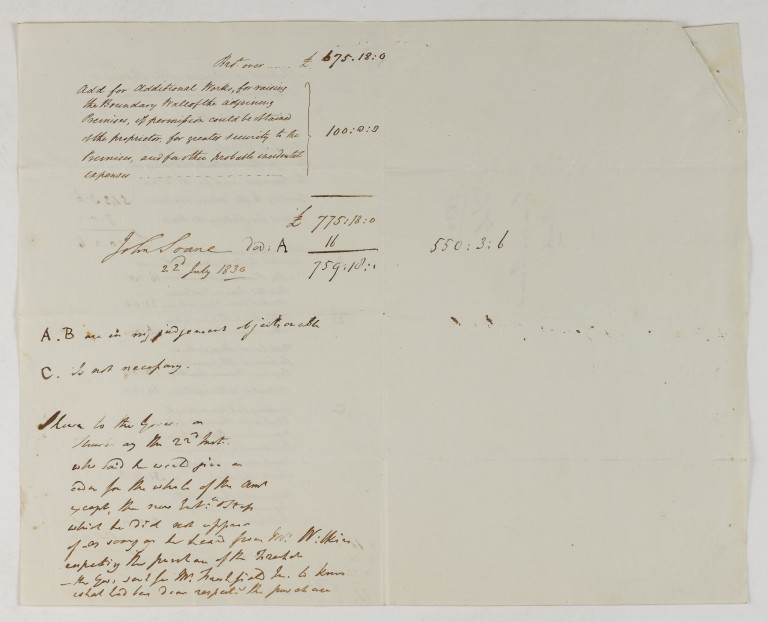 Brt over .... £ 675.18:0
Add for Additional Works, for raising
the Boundary Wall of the adjoining
Premises, if permission could be obtained
of the proprietor, for greater security to the
Premises, and for other probable incidental
expenses
100:0:0
£ 775:18:0
John Soane Ded: A 16
22d July 1830
759:18:
550:3:6
A.B are in my judgement objectionable
C. Is not necessary.
Shewn to the Govr on
the 22d Inst.
who said he would give an
order for the whole of the Amt
except the new Steps
which he did not approve
of as soon as he heard from Mr. Wilkins
respecting the purchase of the Freehold
– the Govr sent for Mr. Freshfield Jr. to know
what had been done respectg the purchase